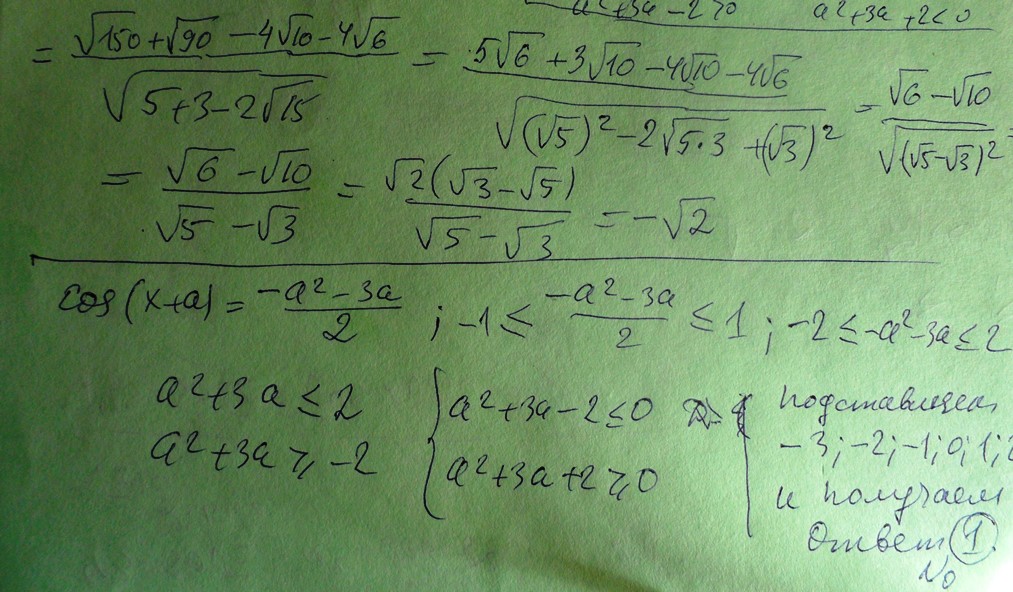 a²+3a-2>0 a²+3a+2<0
= (√150+√90-4√10-4√6)/√(5+3-2√15) = (5√6+3√10-4√10-4√6)/√((√5)²-2√5·3+(√3)²) = (√6-√10)/√((√5-√3)²) =
= (√6-√10)/(√5-√3) = √2(√3-√5)/(√5-√3) = -√2
cos(x+a) = (-a²-3a)/2 ; -1 ≤ (-a²-3a)/2 ≤ 1 ; -2 ≤ -a²-3a ≤ 2
a²+3a ≤ 2 { a²+3a-2 ≤ 0 подставляем
a²+3a ≥ -2 a²+3a+2 ≥ 0 -3; -2; -1; 0; 1; 2
и получаем
Ответ 1
№